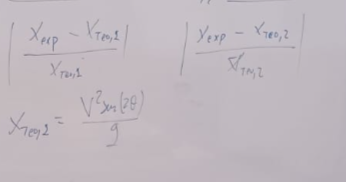 | X_exp − X_Teo,1 / X_Teo,1 |
| X_exp − X_Teo,2 / X_Teo,2 |
X_Teo,2 = V² sen(2θ) / g